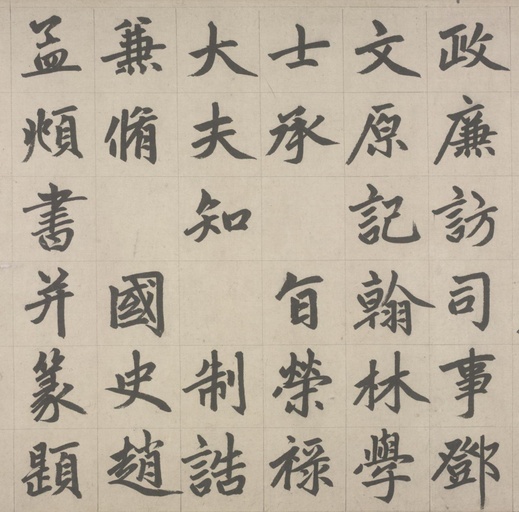 政廉訪司事鄧
文原記翰林學
士承　旨榮祿
大夫知　制誥
兼脩　國史趙
孟頫書并篆題